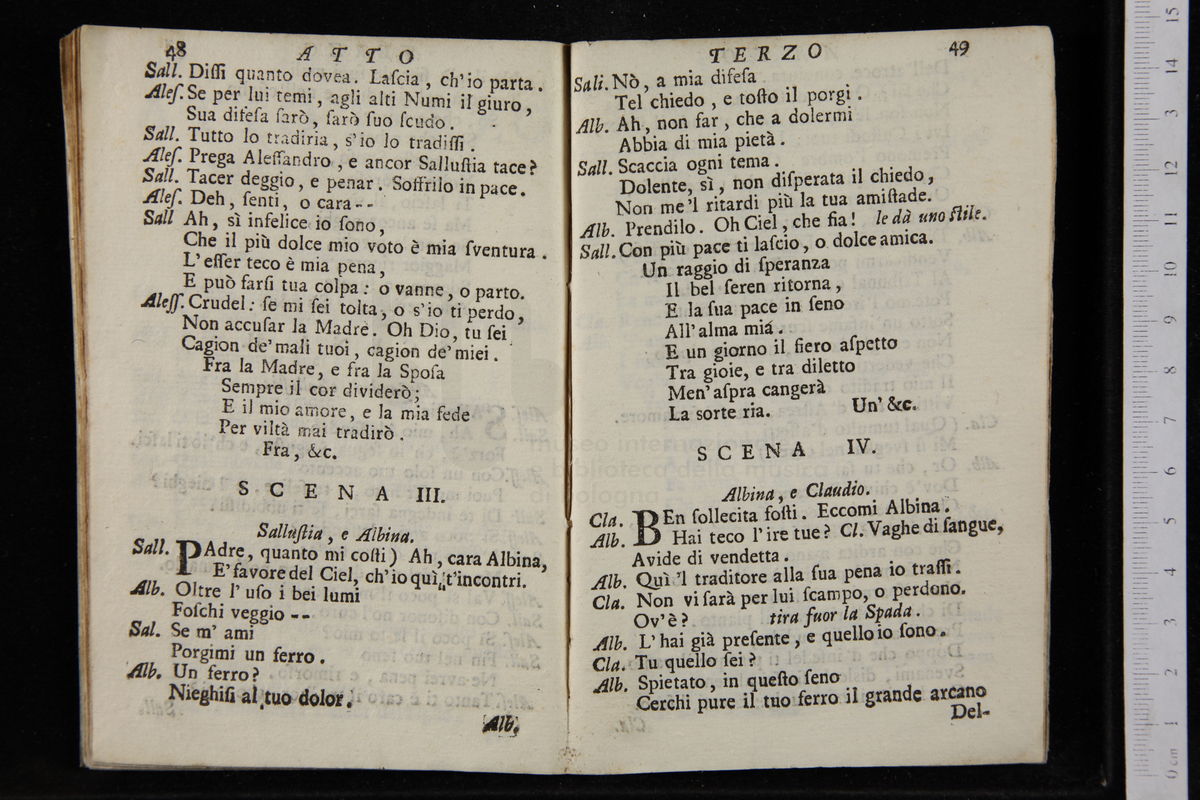 48 ATTO
Sall. Diſſi quanto dovea. Laſcia, ch'io parta.
Aleſ. Se per lui temi, agli alti Numi il giuro,
Sua difeſa farò, farò ſuo ſcudo.
Sall. Tutto lo tradiria, s'io lo tradiſſi.
Aleſ. Prega Aleſſandro, e ancor Salluſtia tace?
Sall. Tacer deggio, e penar. Soffrilo in pace.
Aleſ. Deh, ſenti, o cara--
Sall Ah, sì infelice io ſono,
Che il più dolce mio voto è mia ſventura.
L'eſſer teco è mia pena,
E può farſi tua colpa: o vanne, o parto.
Aleſſ. Crudel: ſe mi ſei tolta, o s'io ti perdo,
Non accuſar la Madre. Oh Dio, tu ſei
Cagion de'mali tuoi, cagion de'miei.
Fra la Madre, e fra la Spoſa
Sempre il cor dividerò;
E il mio amore, e la mia fede
Per viltà mai tradirò.
Fra, &c.
SCENA III.
Salluſtia, e Albina.
Sall. PAdre, quanto mi coſti) Ah, cara Albina,
E'favore del Ciel, ch'io quì t'incontri.
Alb. Oltre l'uſo i bei lumi
Foſchi veggio --
Sal. Se m'ami
Porgimi un ferro.
Alb. Un ferro?
Nieghiſi al tuo dolor.
Alb.
TERZO 49
Sall. Nò, a mia difeſa
Tel chiedo, e toſto il porgi.
Alb. Ah, non far, che a dolermi
Abbia di mia pietà.
Sall. Scaccia ogni tema.
Dolente, sì, non diſperata il chiedo,
Non me'l ritardi più la tua amiſtade.
Alb. Prendilo. Oh Ciel, che fia! le dà uno ſtile.
Sall. Con più pace ti laſcio, o dolce amica.
Un raggio di ſperanza
Il bel ſeren ritorna,
E la ſua pace in ſeno
All'alma mia.
E un giorno il fiero aſpetto
Tra gioie, e tra diletto
Men'aſpra cangerà
La ſorte ria. Un' &c.
SCENA IV.
Albina, e Claudio.
Cla. BEn ſollecita foſti. Eccomi Albina.
Alb. Hai teco l'ire tue? Cl. Vaghe di ſangue,
Avide di vendetta.
Alb. Quì 'l traditore alla ſua pena io traſſi.
Cla. Non vi ſarà per lui ſcampo, o perdono.
Ov'è? tira fuor la Spada.
Alb. L'hai già preſente, e quello io ſono.
Cla. Tu quello ſei?
Alb. Spietato, in queſto ſeno
Cerchi pure il tuo ferro il grande arcano
Del-
museo internazionale
e biblioteca della musica
di bologna
0 cm 1 2 3 4 5 6 7 8 9 10 11 12 13 14 15